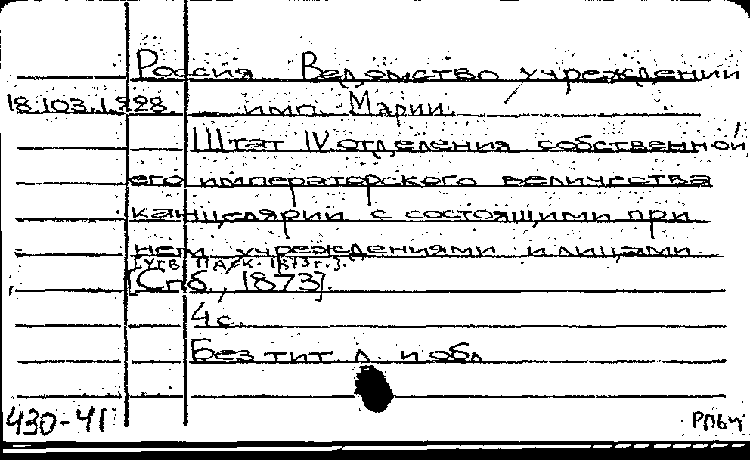 Россия Ведомство учреждений
18.103.1.228 имп. Марии.
Штат IV отделения собственной
его императорского величества
канцелярии с состоящими при
нем учреждениями и лицами
[Спб., 1873].
4 с.
Без тит. л. и обл.
430-41